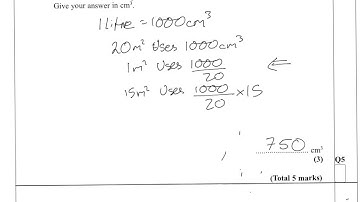 Give your answer in cm³.
1 litre = 1000cm³
20m² uses 1000cm³
1m² uses 1000/20 ←
15m² uses 1000/20 × 15
750 cm³
(3) Q5
(Total 5 marks)